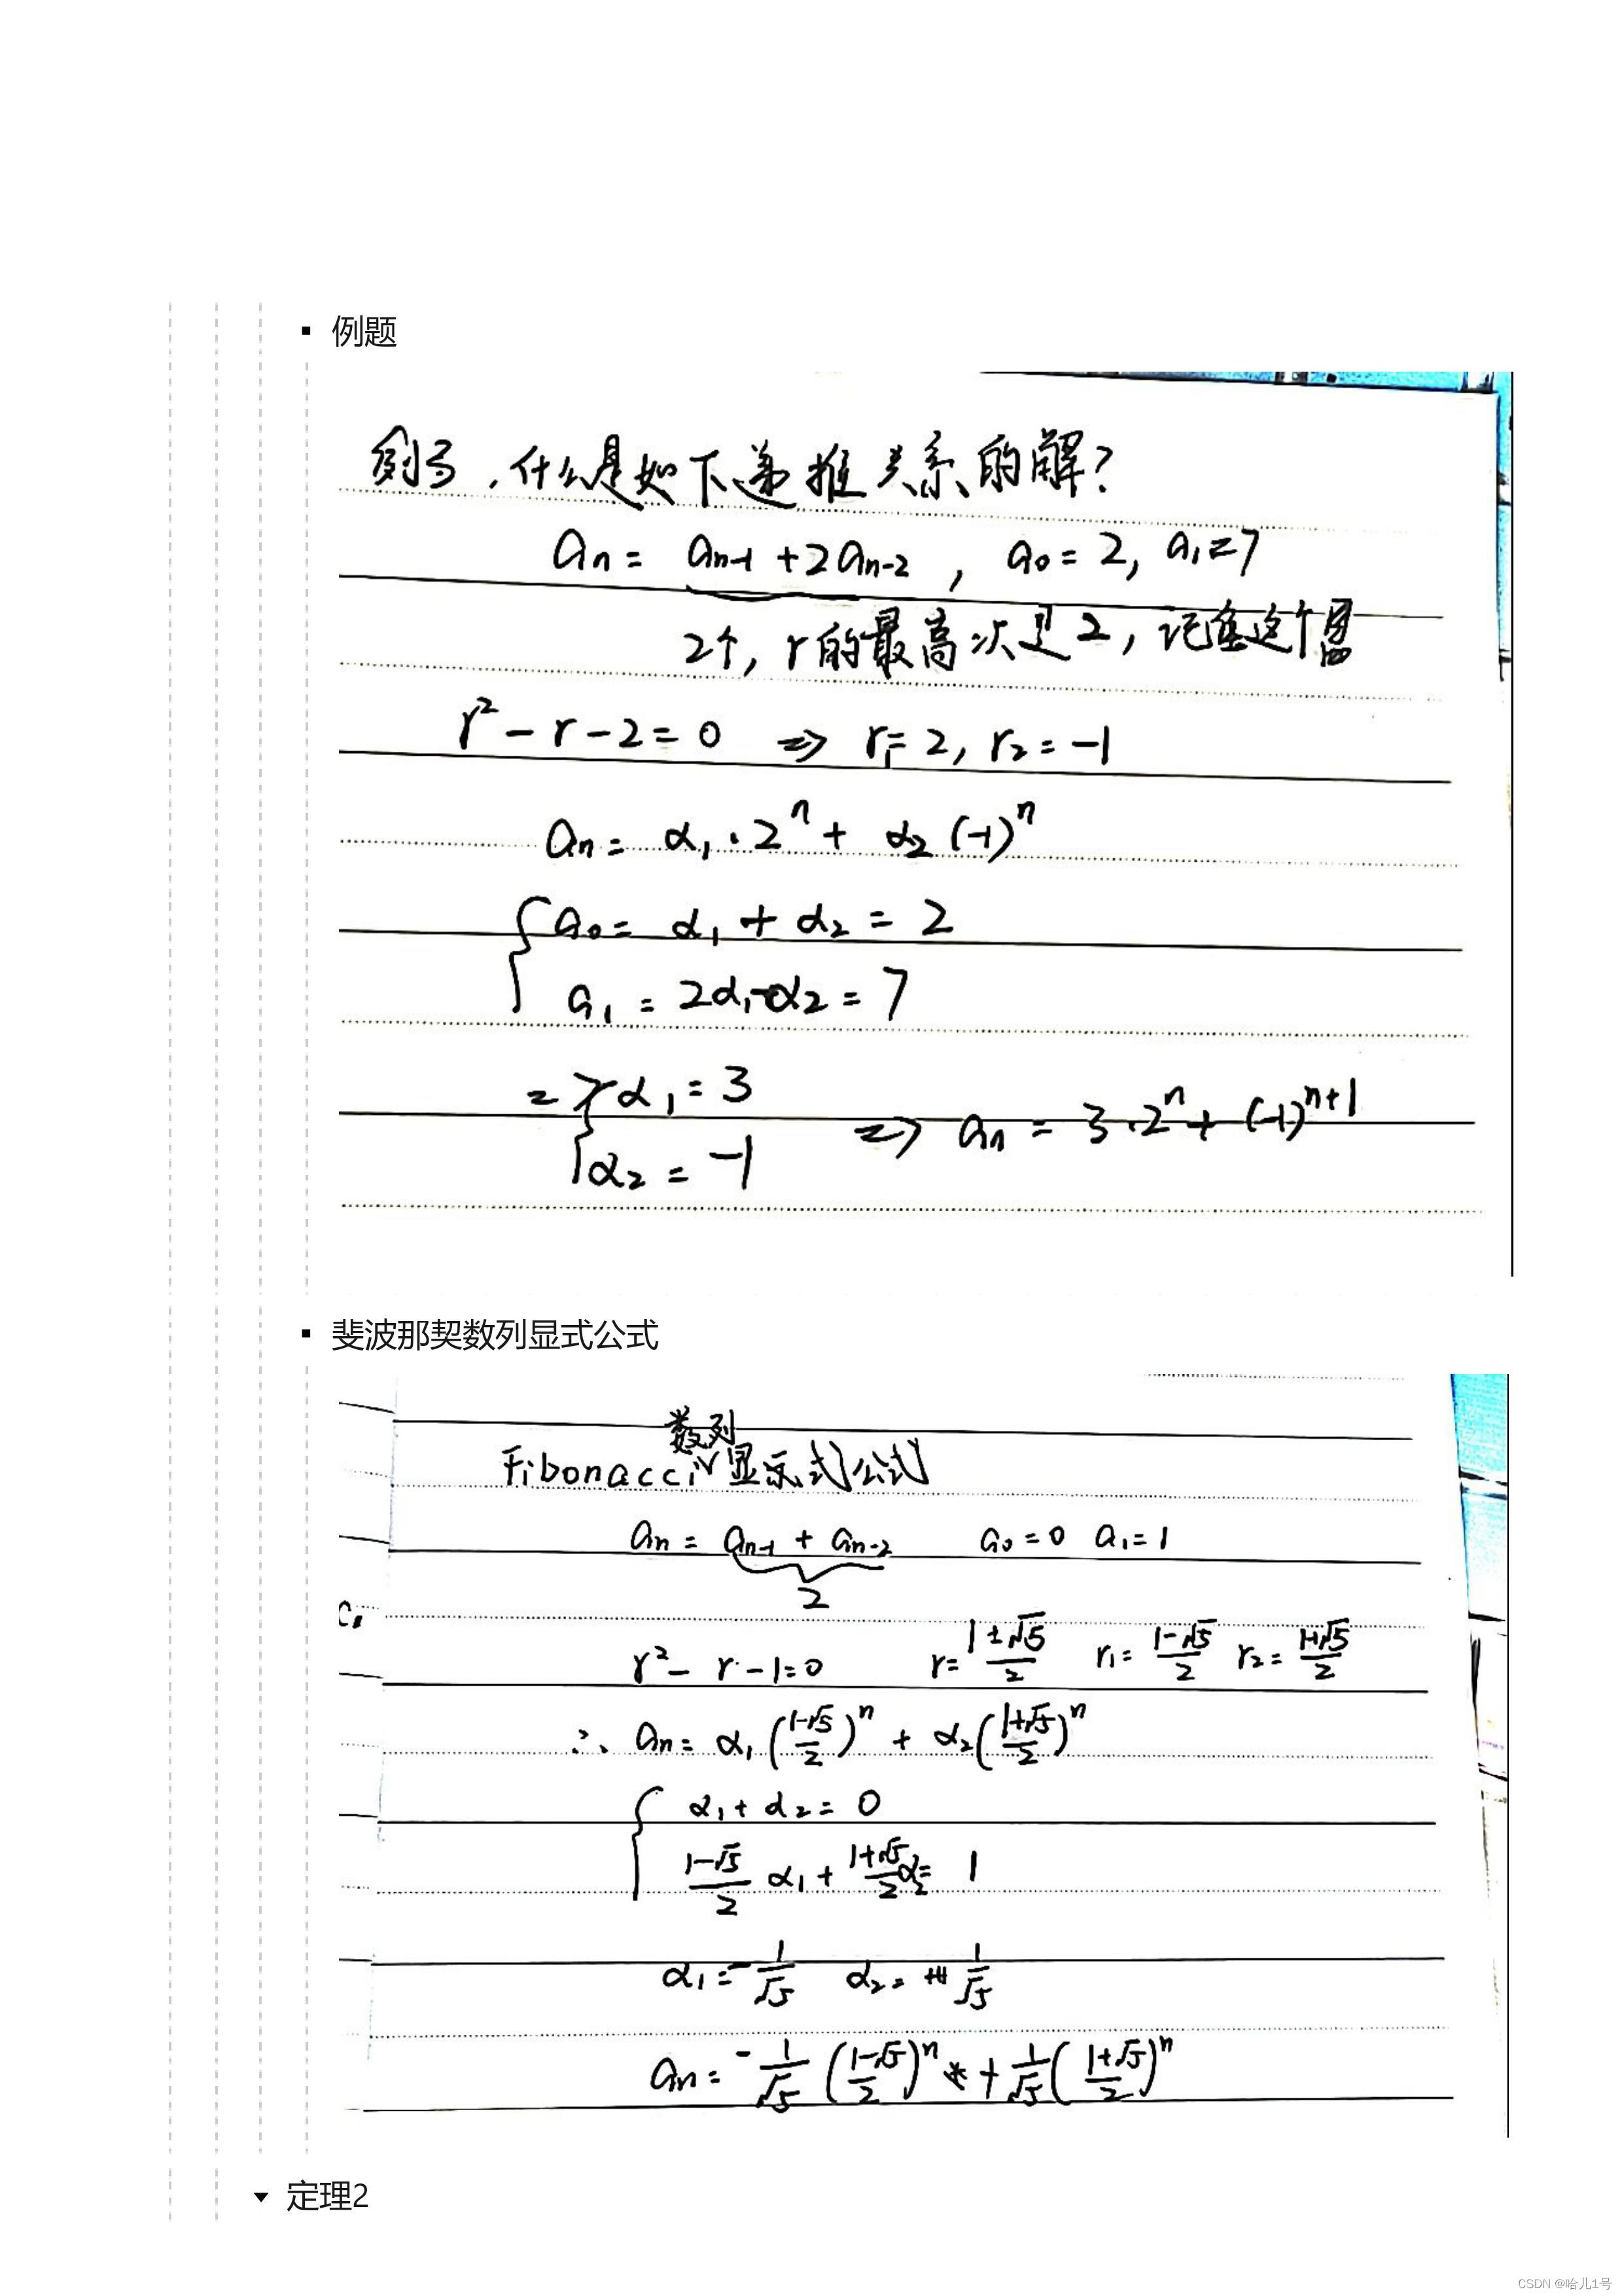 例题
例3，什么是如下递推关系的解？
aₙ = aₙ₋₁ + 2aₙ₋₂ ， a₀ = 2, a₁ = 7
2个，r的最高次是2，记住这个
r² - r - 2 = 0 => r₁ = 2, r₂ = -1
aₙ = α₁·2ⁿ + α₂(-1)ⁿ
{ a₀ = α₁ + α₂ = 2
a₁ = 2α₁ - α₂ = 7
=> { α₁ = 3
α₂ = -1 => aₙ = 3·2ⁿ + (-1)ⁿ⁺¹
斐波那契数列显式公式
数列
Fibonacci∨显示式公式
aₙ = aₙ₋₁ + aₙ₋₂ a₀ = 0 a₁ = 1
2
r² - r - 1 = 0 r = (1±√5)/2 r₁ = (1-√5)/2 r₂ = (1+√5)/2
∴ aₙ = α₁((1-√5)/2)ⁿ + α₂((1+√5)/2)ⁿ
{ α₁ + α₂ = 0
(1-√5)/2 α₁ + (1+√5)/2 α₂ = 1
α₁ = -1/√5 α₂ = + 1/√5
aₙ = -1/√5 ((1-√5)/2)ⁿ + 1/√5 ((1+√5)/2)ⁿ
定理2
CSDN @哈儿1号